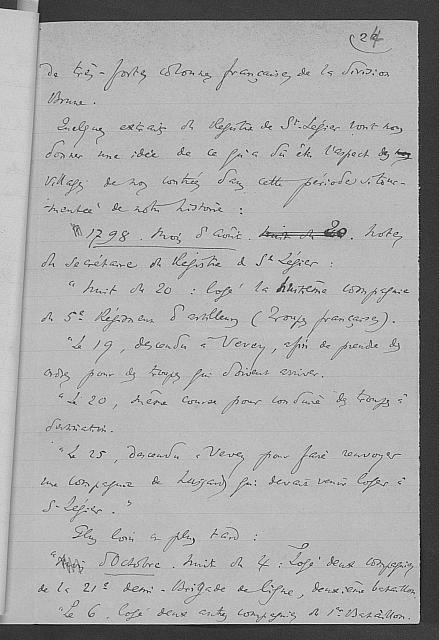 24
de très-fortes colonnes françaises de la division
Brune.
Quelques extraits du Registre de St-Légier vont nous
donner une idée de ce qu'a dû être l'aspect des
villages de nos contrées dans cette période si tour-
-mentée de notre histoire :
1798. Mois d'Août. Nuit du 20. Notes
du Secrétaire du Registre de St Légier :
"Nuit du 20 : logé la huitième compagnie
du 5e Régiment d'artillerie (Troupes françaises).
"Le 19, descendu à Vevey, afin de prendre des
ordres pour des troupes qui doivent arriver.
"Le 20, même course pour conduire des troupes à
destination.
"Le 25, descendu à Vevey pour faire renvoyer
une compagnie de hussards qui devait venir loger à
St-Légier."
Plus loin et plus tard :
d'Octobre. Nuit du 4 : Logé deux compagnies
de la 21e demi-Brigade de ligne, deuxième bataillon
"Le 6. logé deux autres compagnies du 1er Bataillon.